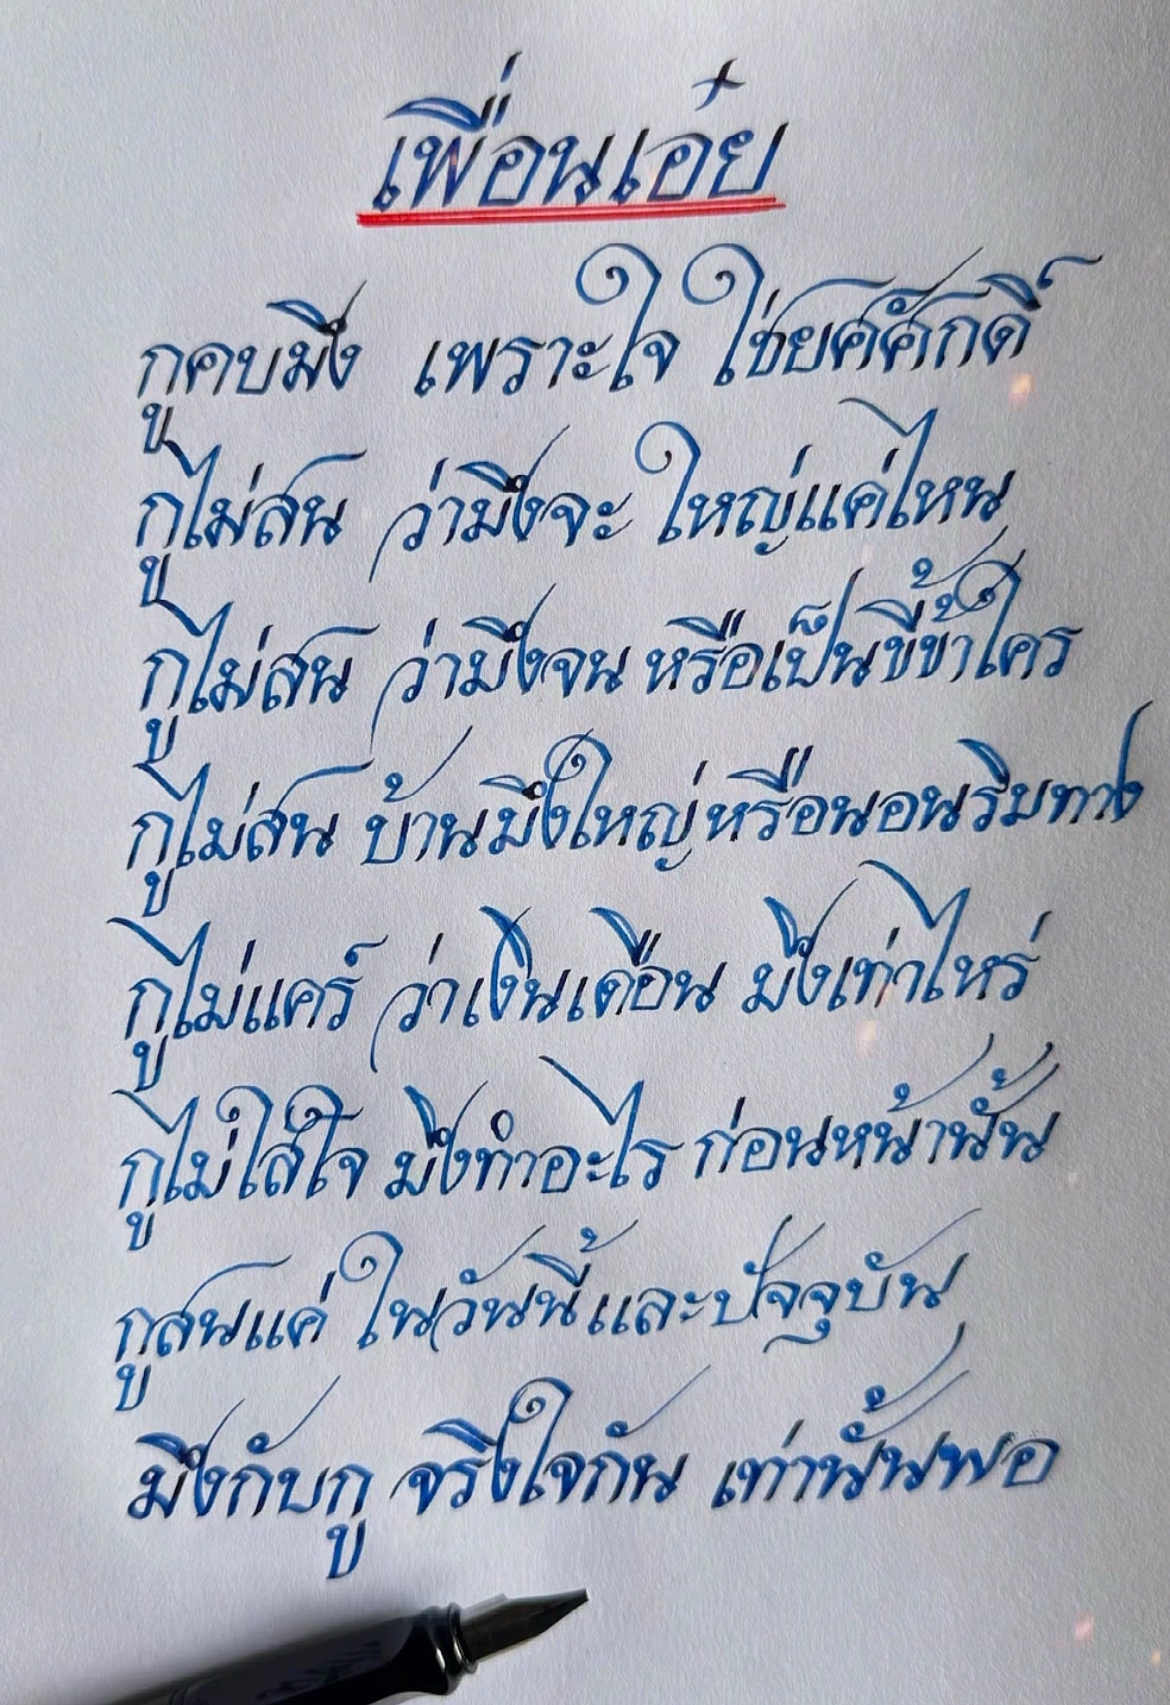 เพื่อนเอ๋ย
กูคบมึง เพราะใจ ใช่ยศศักดิ์
กูไม่สน ว่ามึงจะ ใหญ่แค่ไหน
กูไม่สน ว่ามึงจน หรือเป็นขี้ข้าใคร
กูไม่สน บ้านมึงใหญ่หรือนอนริมทาง
กูไม่แคร์ ว่าเงินเดือน มึงเท่าไหร่
กูไม่ใส่ใจ มึงทำอะไร ก่อนหน้านั้น
กูสนแค่ ในวันนี้และปัจจุบัน
มึงกับกู จริงใจกัน เท่านั้นพอ